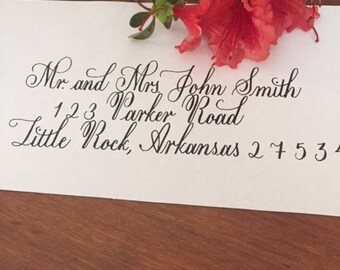 Mr. and Mrs. John Smith
123 Parker Road
Little Rock, Arkansas 27534